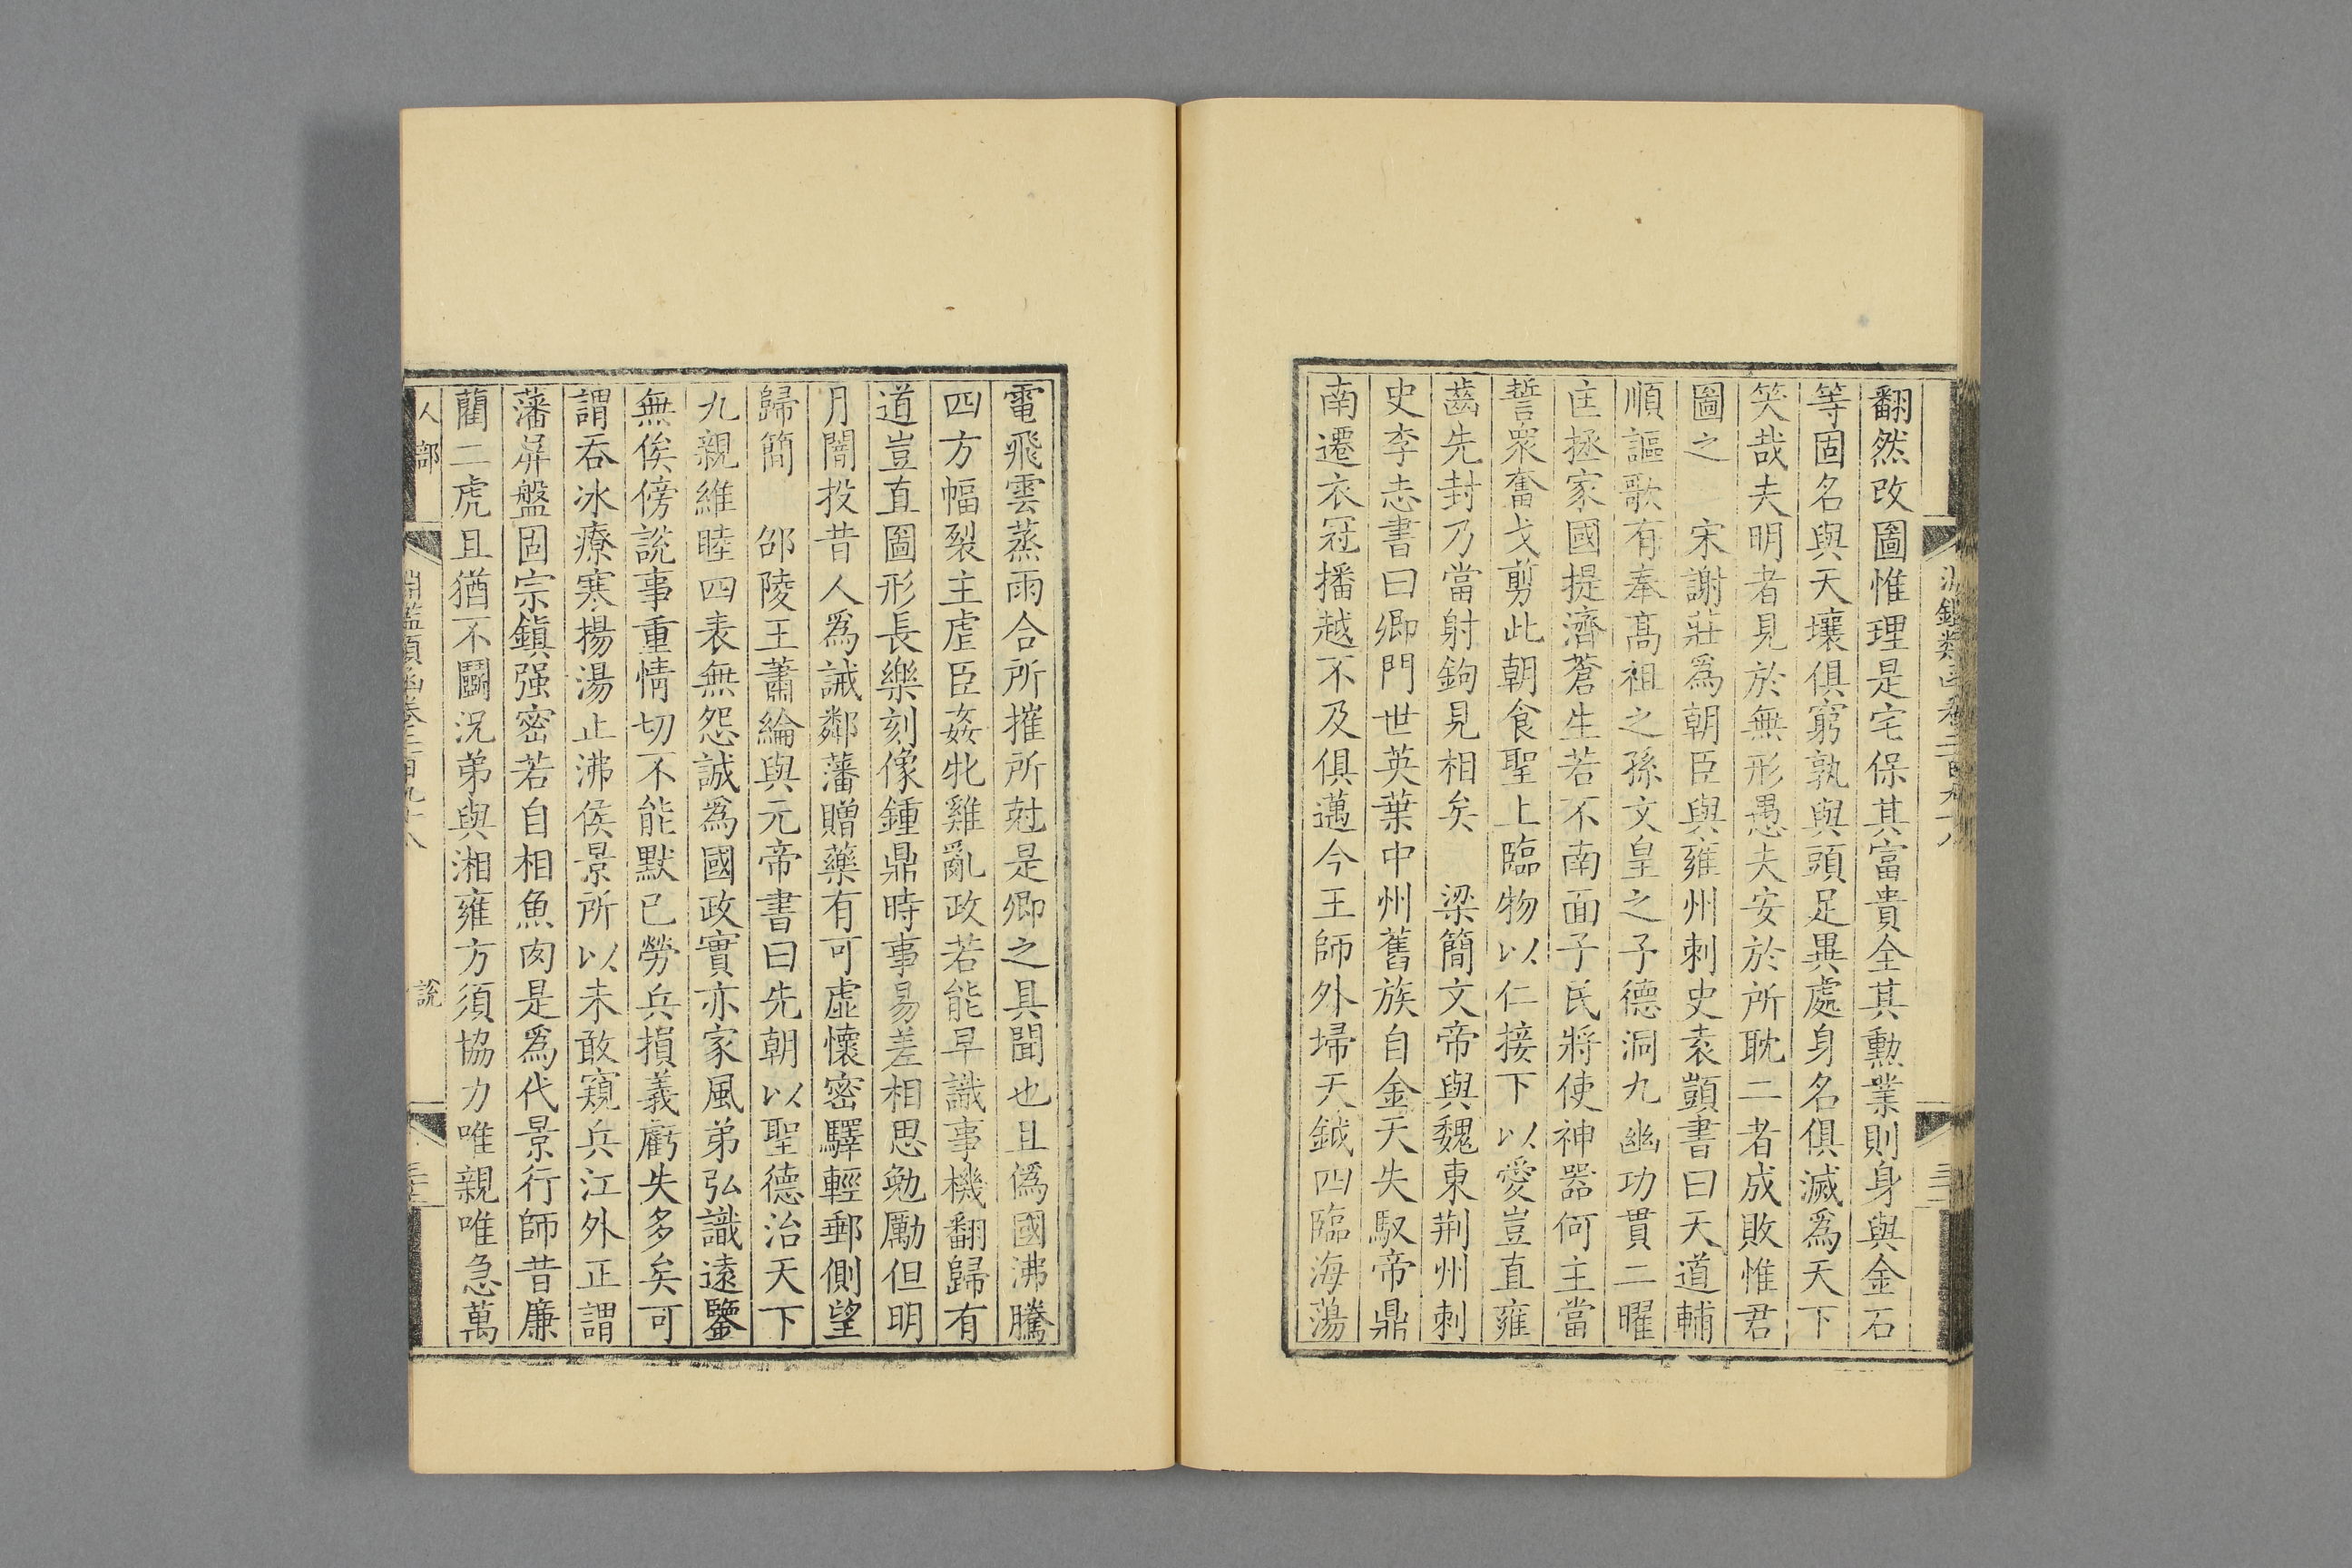 翻然改圖惟理是宅保其富貴全其勲業則身與金石
等固名與天壤俱窮孰與頭足異處身名俱滅爲天下
笑哉夫明者見於無形愚夫安於所耽二者成敗惟君
圖之　宋謝莊爲朝臣與雍州刺史袁顗書曰天道輔
順謳歌有奉髙祖之孫文皇之子德洞九幽功貫二曜
匡拯家國提濟蒼生若不南面子民將使神器何主當
誓衆奮戈剪此朝食聖上臨物以仁接下以愛豈直雍
齒先封乃當射鉤見相矣　梁簡文帝與魏東荆州刺
史李志書曰卿門世英葉中州舊族自金天失馭帝鼎
南遷衣冠播越不及俱邁今王師外埽天鉞四臨海蕩
電飛雲蒸雨合所摧所尅是卿之具聞也且僞國沸騰
四方幅裂主虐臣姦牝雞亂政若能早識事機翻歸有
道豈直圖形長樂刻像鍾鼎時事易差相思勉勵但明
月闇投昔人爲誡鄰藩贈藥有可虛懷密驛輕郵側望
歸簡　邵陵王蕭綸與元帝書曰先朝以聖德治天下
九親維睦四表無怨誠爲國政實亦家風弟弘識遠鑒
無俟傍說事重情切不能默已勞兵損義虧失多矣可
謂吞冰療寒揚湯止沸侯景所以未敢窺兵江外正謂
藩屏盤固宗鎭强密若自相魚肉是爲代景行師昔廉
藺二虎且猶不鬭況弟與湘雍方須協力唯親唯急萬
人部
淵鑑類函卷二百九十八
說